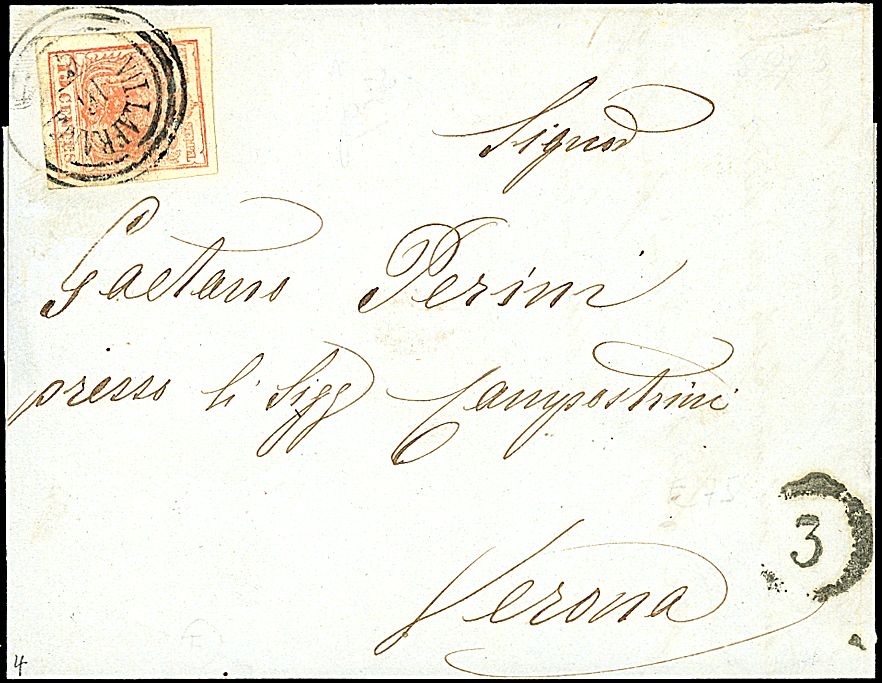 VILLAFRANCA
15 CENTES
Signor
Gaetano Perini
presso li Sigg Campostrini
Verona
3
4